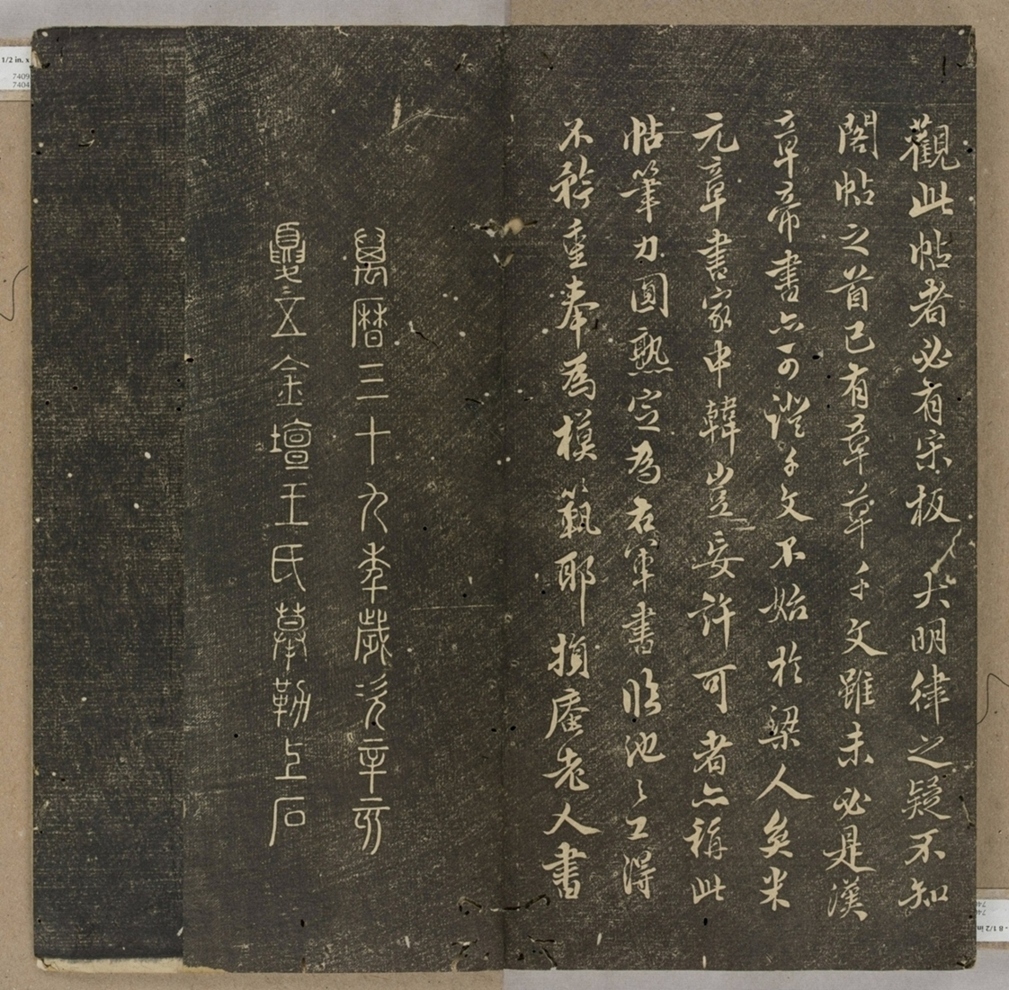 觀此帖者必有宋板大明律之疑不知
閣帖之首已有章草千文雖未必是漢
章帝書亦可證千文不始於梁人矣米
元章書家申韓豈妄許可者亦稱此
帖筆力圓熟定為右軍書臨池之工得
不矜重奉為模範耶損庵老人書
萬曆三十九年歲次辛亥
夏五金壇王氏摹勒上石
1/2 in.
7409
7404
8 1/2 in.